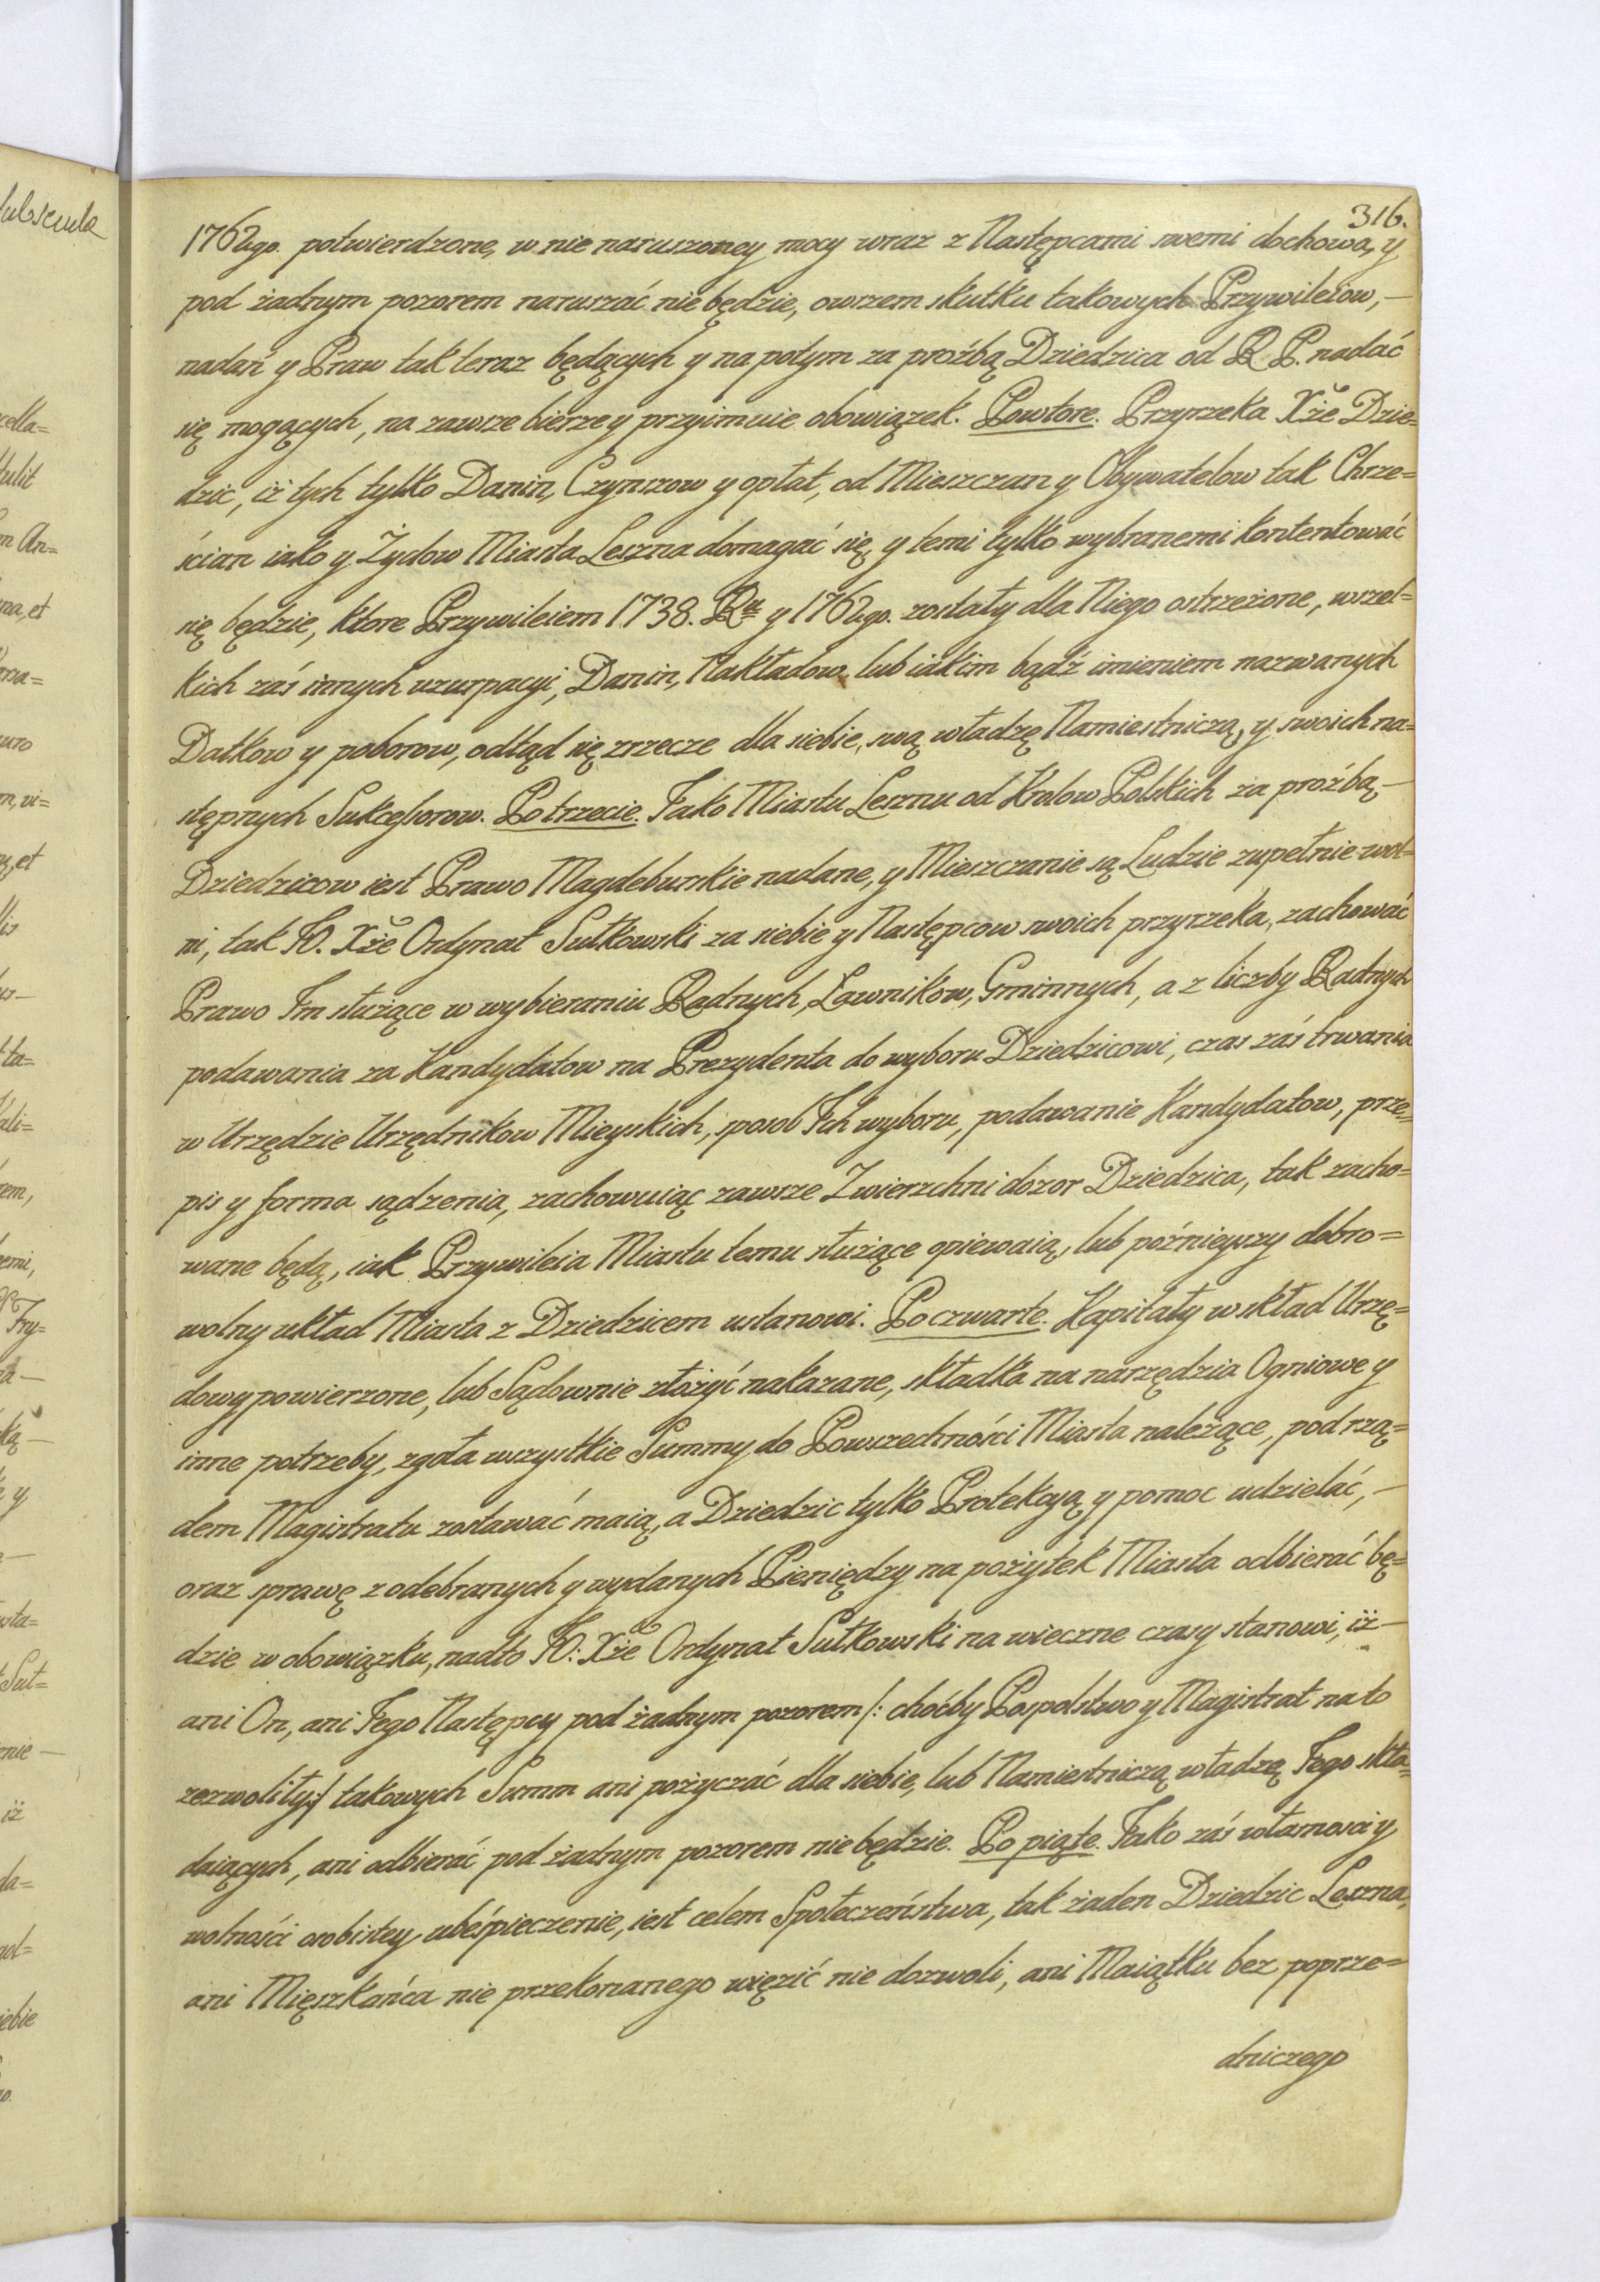 316.
1762go. potwierdzone, w nie naruszoney mocy wraz z Następcami swemi dochowa, y
pod żadnym pozorem naruszać nie będzie, owszem skutku takowych Przywileiow,—
nadań y Praw tak teraz będących y na potym za proźbą Dziedzica od R P. nadać
się mogących, na zawsze bierze y przyimuie obowiązek. Powtore. Przyrzeka Xże Dzie=
dzic, iż tych tylko Danin, Czynszow y opłat, od Mieszczan y Obywatelow tak Chrze=
ścian iako y Żydow Miasta Leszna domagać się, y temi tylko wybranemi kontentować
się będzie, ktore Przywileiem 1738. Ru y 1762go. zostały dla Niego ostrzeżone, wszel=
kich zaś innych uzurpacyi, Danin, Nakładow, lub iakim bądź imieniem nazwanych
Datkow y poborow, odtąd się zrzecze dla siebie, swą władzę Namiestniczą, y swoich na=
stępnych Sukcessorow. Potrzecie. Jako Miastu Lesznu od Krolow Polskich za proźbą—
Dziedzicow iest Prawo Magdeburskie nadane, y Mieszczanie są Ludzie zupełnie wol=
ni, tak JO. Xże Ordynat Sułkowski za siebie y Następcow swoich przyrzeka, zachować
Prawo Im służące w wybieraniu Radnych, Ławnikow, Gminnych, a z liczby Radnych
podawania za Kandydatow na Prezydenta do wyboru Dziedzicowi, czas zaś trwania
w Urzędzie Urzędnikow Mieyskich, sposob Ich wyboru, podawanie Kandydatow, prze=
pis y forma sądzenia, zachowuiąc zawsze Zwierzchni dozor Dziedzica, tak zacho=
wane będą, iak Przywileia Miastu temu służące opiewaią, lub poźnieyszy dobro=
wolny układ Miasta z Dziedzicem ustanowi. Poczwarte. Kapitały w skład Urzę=
dowy powierzone, lub Sądownie złożyć nakazane, składka na narzędzia Ogniowe y
inne potrzeby, zgoła wszystkie Summy do Powszechności Miasta należące, pod rzą=
dem Magistratu zostawać maią, a Dziedzic tylko Protekcyą y pomoc udzielać,—
oraz sprawę z odebranych y wydanych Pieniędzy na pożytek Miasta odbierać bę=
dzie w obowiązku, nadto JO: Xże Ordynat Sułkowski na wieczne czasy stanowi, iż—
ani On, ani Jego Następcy pod żadnym pozorem /: choćby Pospolstwo y Magistrat na to
zezwoliły:/ takowych Summ ani pożyczać dla siebie, lub Namiestniczą władzę Jego skła=
daiących, ani odbierać pod żadnym pozorem nie będzie. Po piąte. Jako zaś własności y
wolności osobistey ubeśpieczenie, iest celem Społeczeństwa, tak żaden Dziedzic Leszna,
ani Mięszkańca nie przekonanego więzić nie dozwoli, ani Maiątku bez poprze=
dniczego